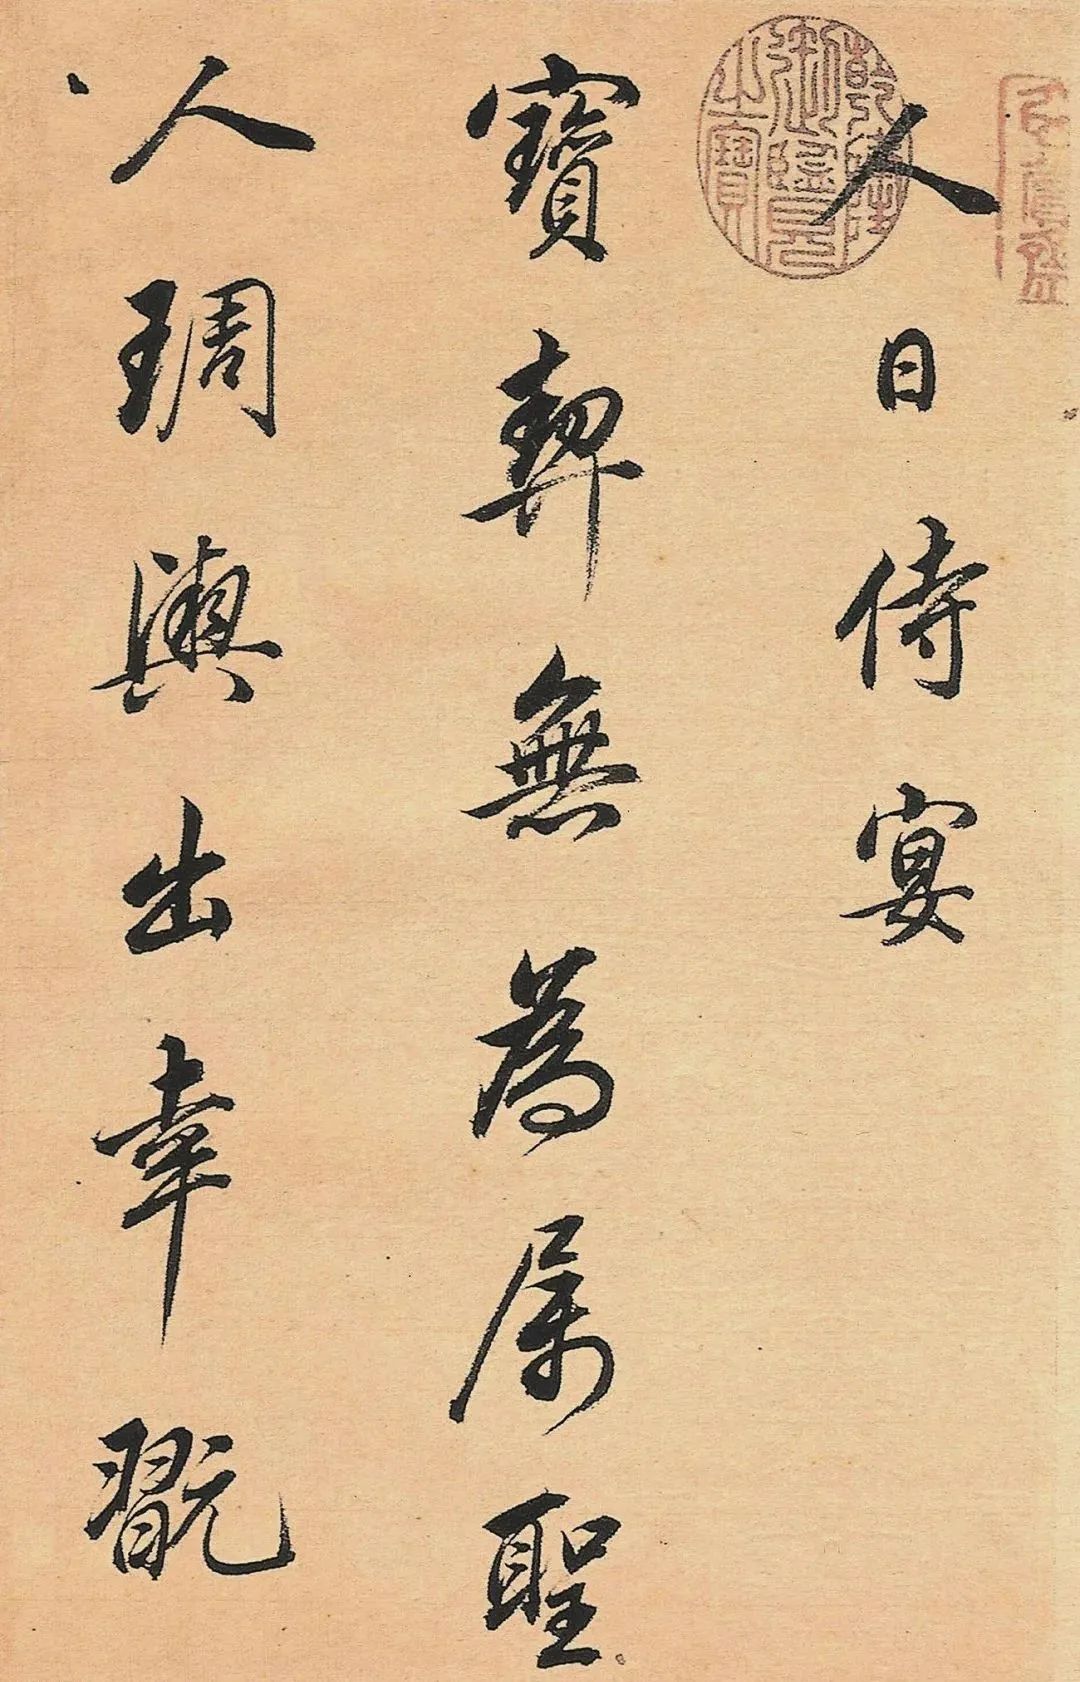 乾隆御覽之寶
人日侍宴
寶契無為属聖
人琱輿出幸翫